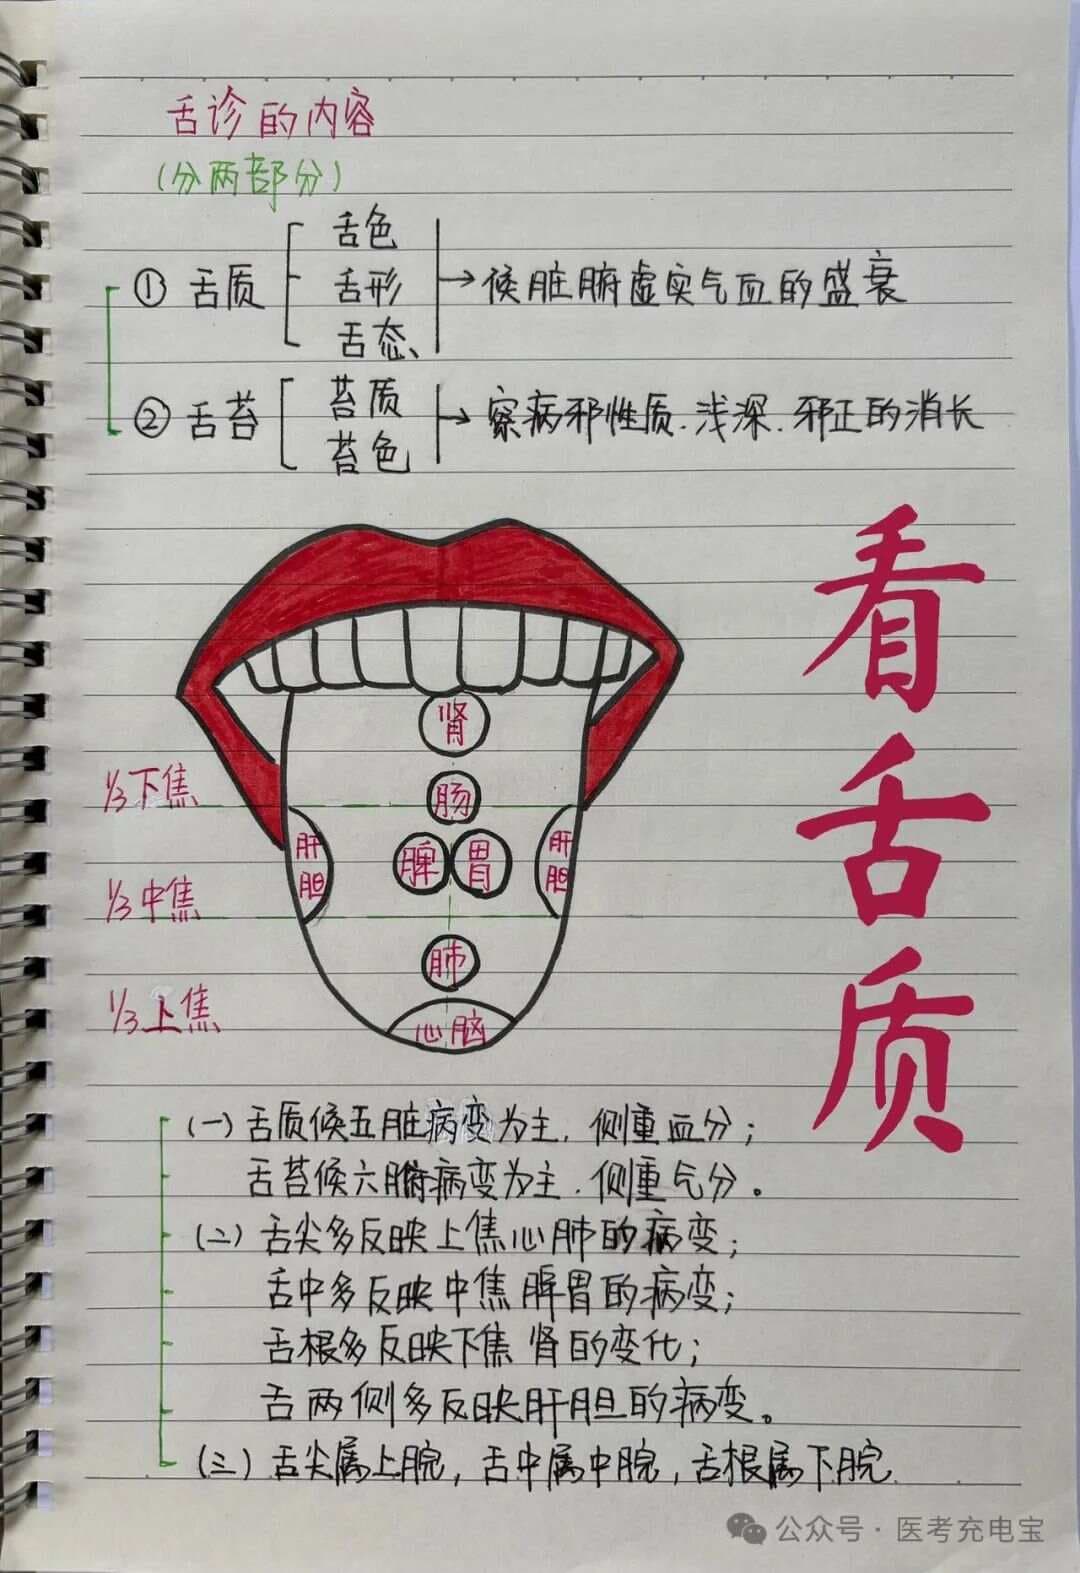 舌诊的内容
(分两部分)
舌色
① 舌质 舌形 → 候脏腑虚实气血的盛衰
舌态、
苔质
② 舌苔 → 察病邪性质.浅深.邪正的消长
苔色
看舌质
肾
1/3下焦 肠
肝胆 脾 胃 肝胆
1/3中焦
肺
1/3上焦 心脑
(一) 舌质候五脏病变为主.侧重血分;
舌苔候六腑病变为主.侧重气分。
(二) 舌尖多反映上焦心肺的病变;
舌中多反映中焦脾胃的病变;
舌根多反映下焦肾的变化;
舌两侧多反映肝胆的病变。
(三) 舌尖属上脘,舌中属中脘,舌根属下脘.
公众号·医考充电宝